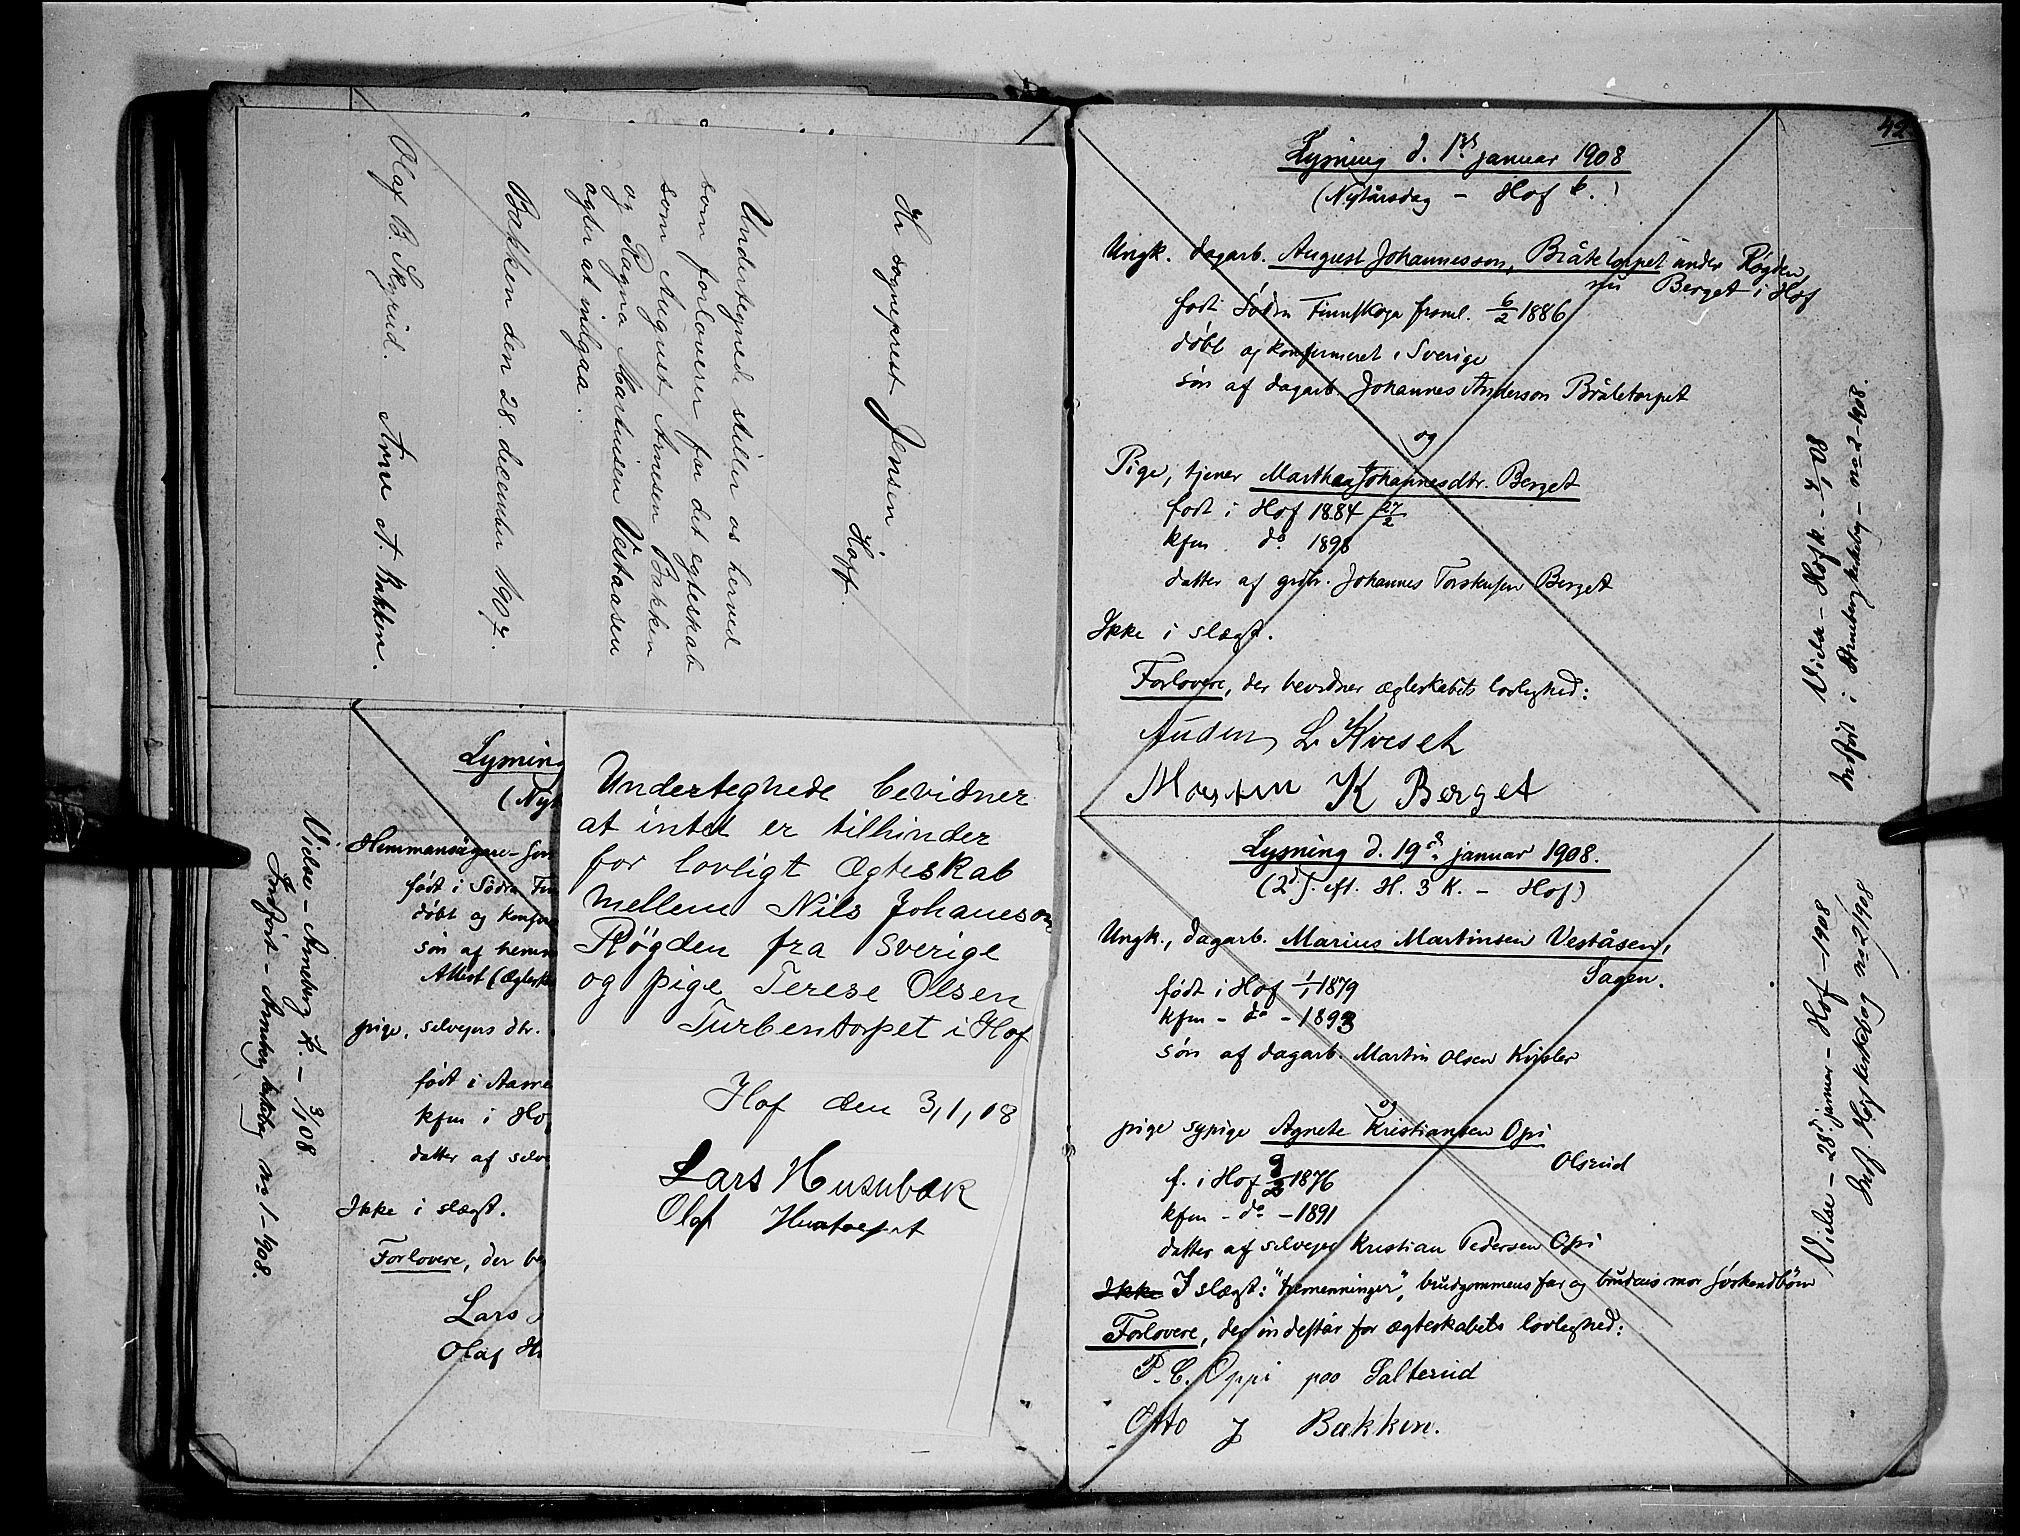 Hr sogneprest Jensen
Hoff.
Undertegnede stiller os herved
som forlovere for det egteskab
som August Arnesen Bakken
og Ragna Martinsen Vestaasen
agter at indgaa.
Bakken den 28. december 1907.
Olaf B. Skyrud. Arne A. Bakken.
Lysning
(Nyt
Hemmansägare-
født i Södra
døbt og konf
søn af hemm
Attest (Ægtesk
pige, selveiers dtr.
født i Aasne
kfm i Ho
datter af selve
Ikke i slægt.
Forlovere, der be
Lars
Olaf
Vielse - Arneberg k. - 3/1 08
Indført - Arneberg kirkebog no 1 - 1908.
Undertegnede bevidner
at intet er tilhinder
for lovligt Ægteskab
mellem Nils Johaneson
Røgden fra Sverige
og pige Terese Olsen
Turbentorpet i Hof
Hof den 3,1,08
Lars Husubæk
Olaf
42
Lysning d. 1st januar 1908
(Nytårsdag - Hof k.)
Ungk. dagarb. August Johannesson, Bråtetorpet under Røgden,
nu Berget i Hof
født Södra Finnskoga forsml. 6/2 1886
døbt og konfirmeret i Sverige
søn af dagarb. Johannes Anderson Bråtetorpet
og
Pige, tjener Marthea Johannesdtr. Berget
født i Hof 1884 27/2
kfm do 1898
datter af grdbr. Johannes Torstensen Berget
Ikke i slægt.
Forlovere, der bevidner ægteskabets lovlighed:
Auden L Kveset
Morten K Berget
Vielse - Hof k. - 08
Indført i Arneberg kirkebog - no 2 - 1908.
Lysning d. 19de januar 1908.
(2d S. eft. H. 3 K. - Hof)
Ungk., dagarb. Marius Martinsen Veståsen,
Sagen.
født i Hof 1/1 1879
kfm - do - 1893
søn af dagarb. Martin Olsen Kvisler
og
pige sypige Agnete Kristiansen Opi
Olsrud
f. i Hof 9/2 1876
kfm - do - 1891
datter af selveier Kristian Pedersen Opi
Ikke I slægt: "tremenninger", brudgommens far og brudens mor søskendbørn
Forlovere, der indestår for ægteskabets lovlighed:
P. C. Oppi paa Salterud
Otto J Bakken.
Vielse - 28d januar - Hof - 1908
Indf. Hof kirkebog no 2/1908